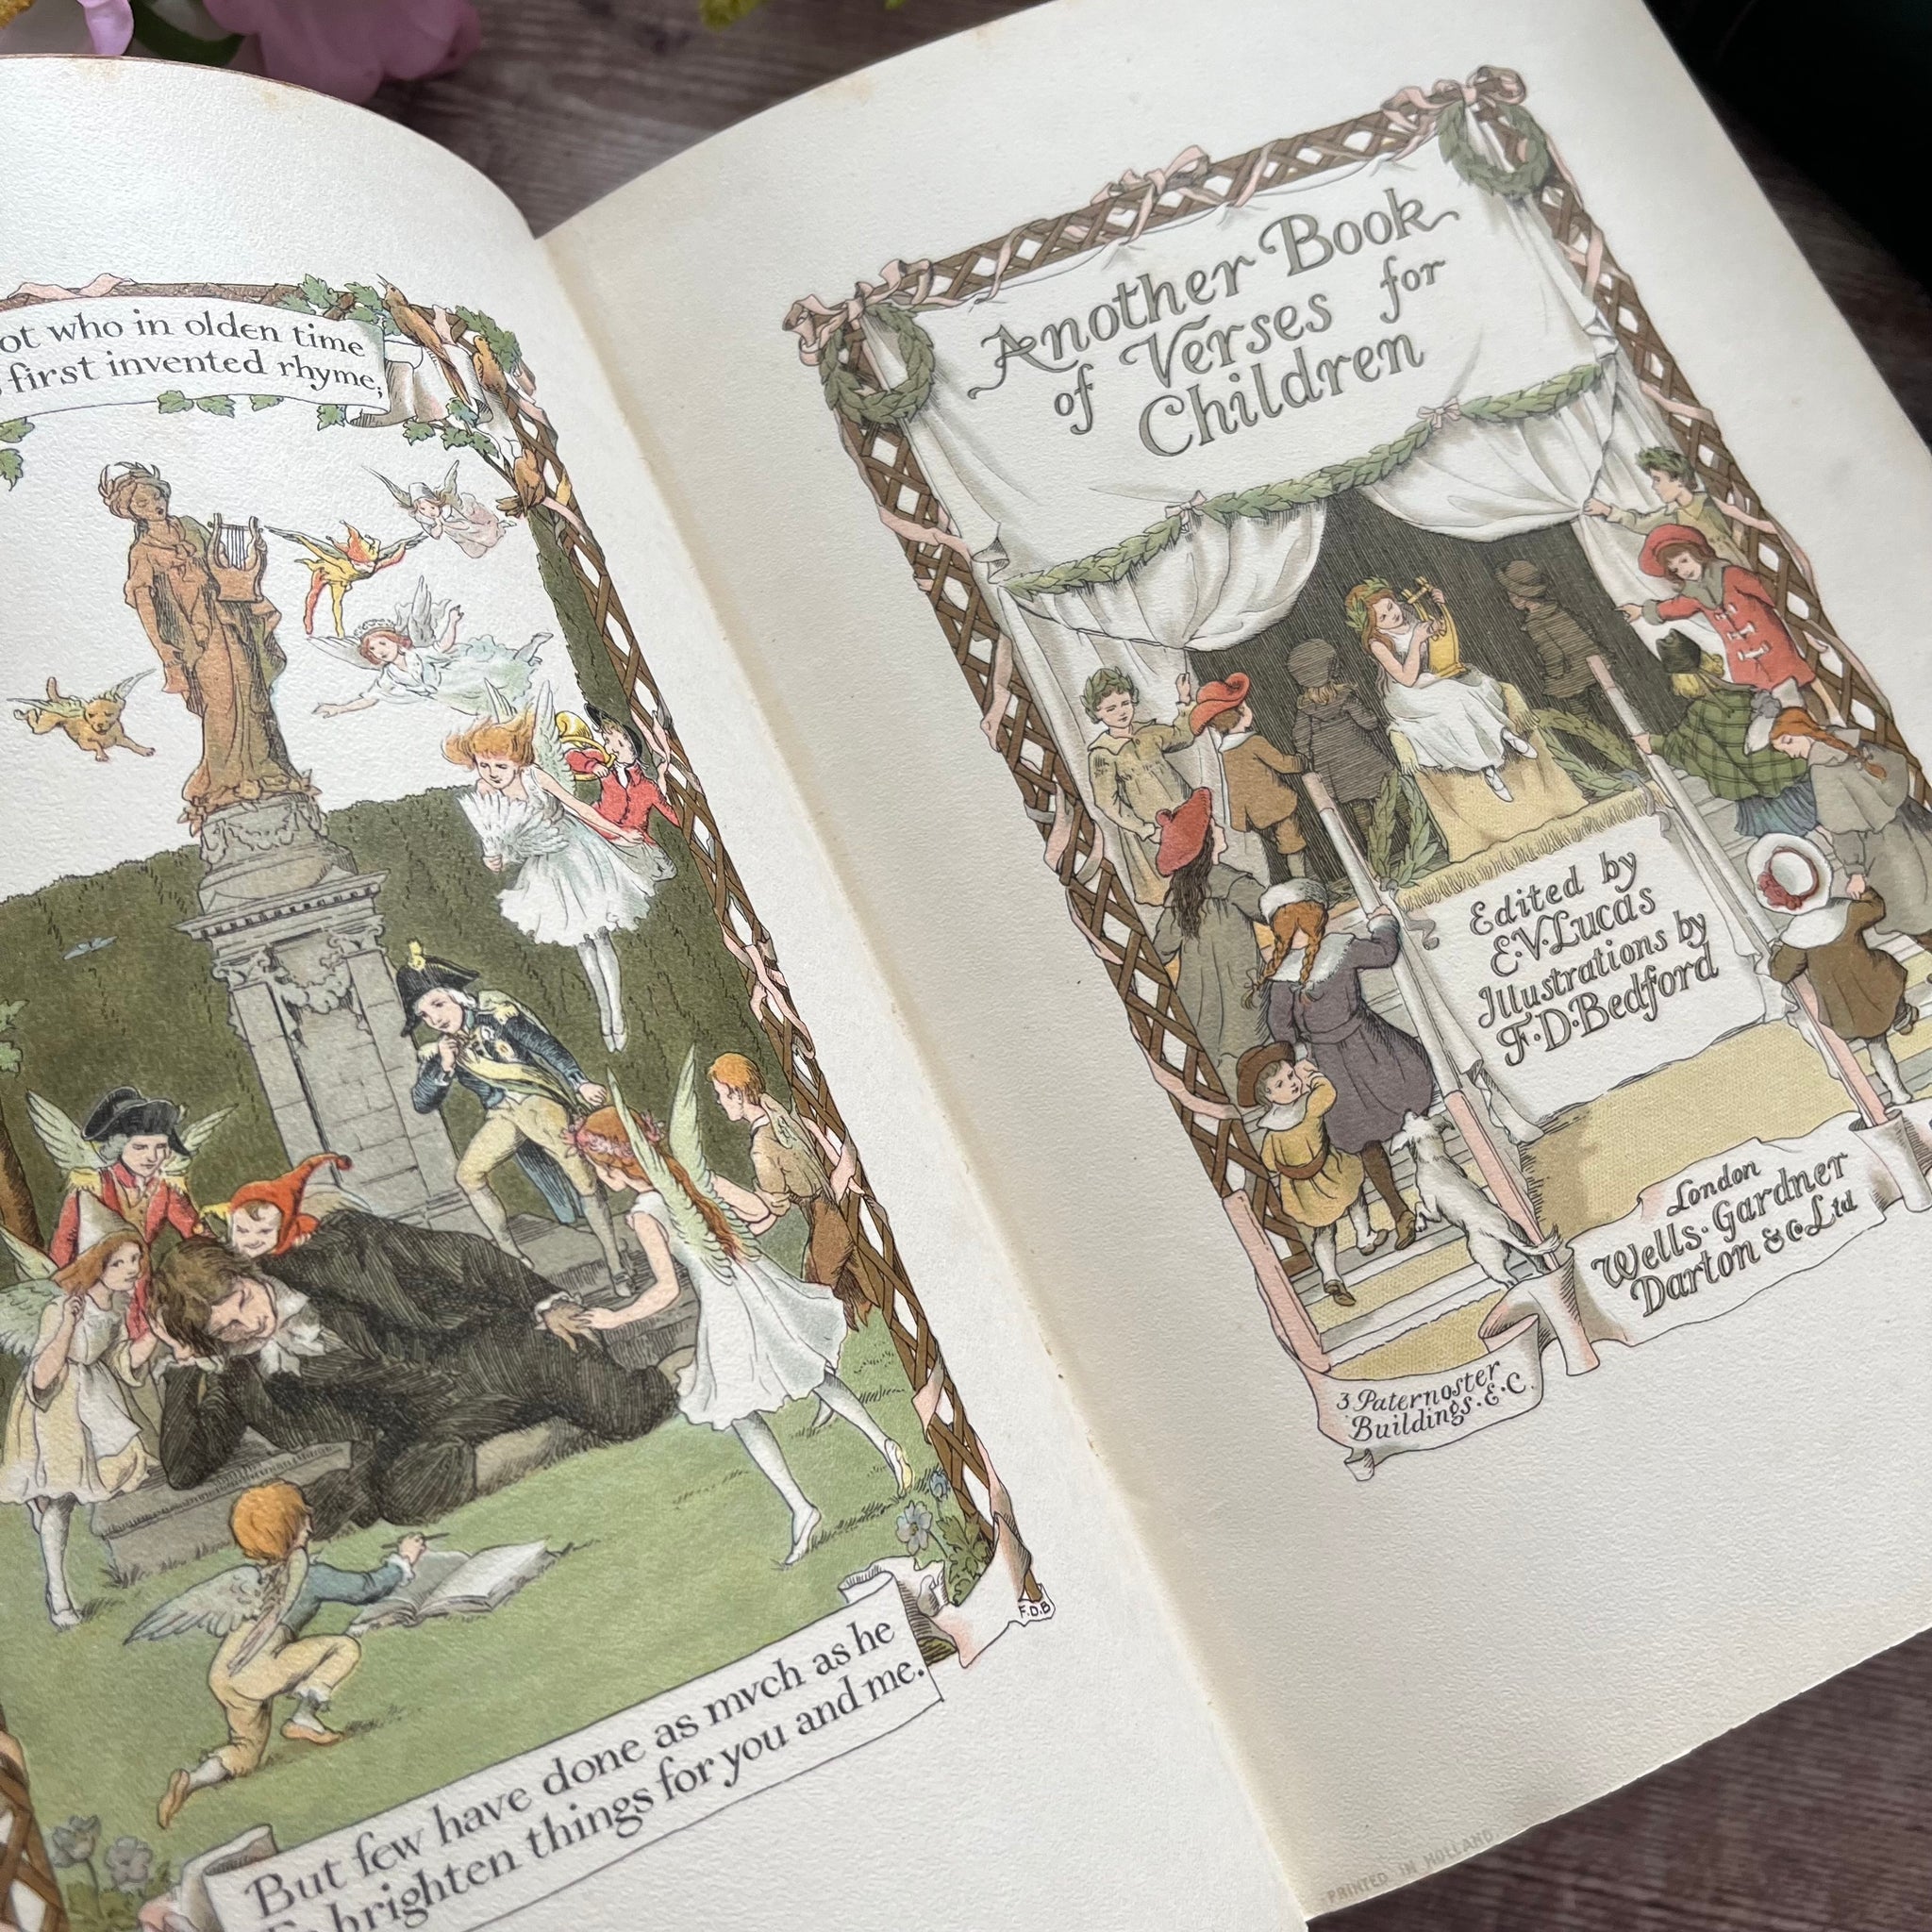 ot who in olden time
first invented rhyme;
But few have done as mvch as he
To brighten things for you and me.
F.D.B
Another Book
of Verses for
Children
Edited by
E.V. Lucas
Illustrations by
F.D. Bedford
London
Wells. Gardner
Darton & Co Ltd
3 Paternoster
Buildings. E.C.
PRINTED IN HOLLAND